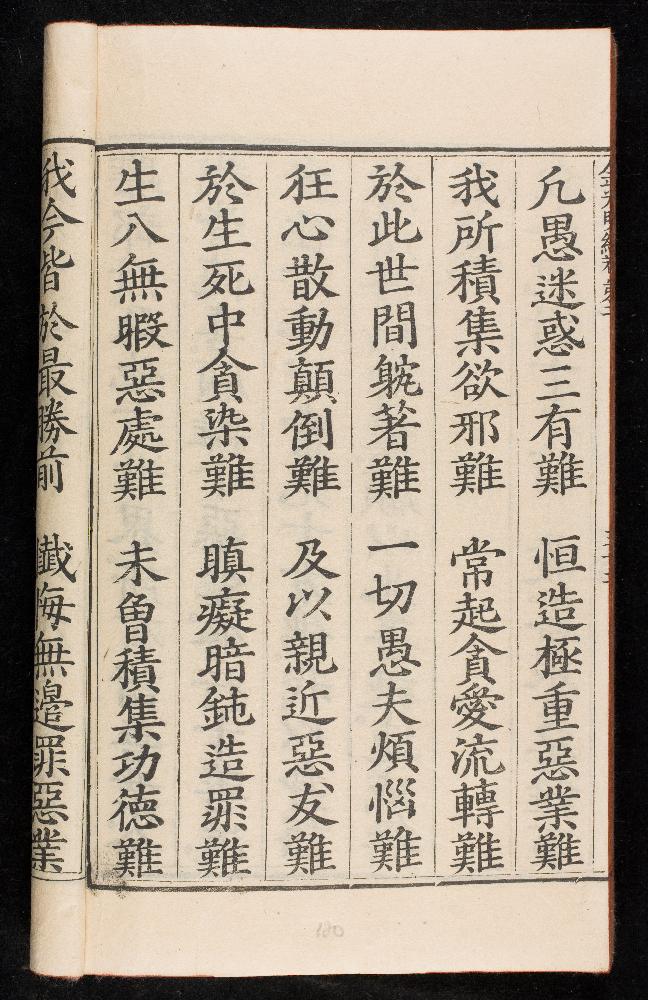 凢愚迷惑三有難　恒造極重惡業難
我所積集欲邪難　常起貪愛流轉難
於此世間躭著難　一切愚夫煩惱難
狂心散動顛倒難　及以親近惡友難
於生死中貪染難　瞋癡暗鈍造罪難
生八無暇惡處難　未曾積集功德難
我今皆於最勝前　懺悔無邊罪惡業
180